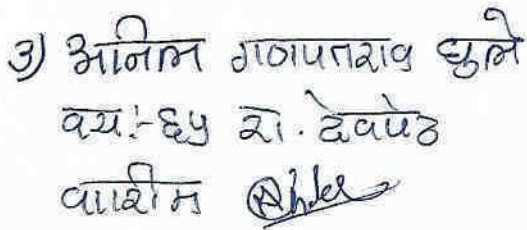 ३) अनिल गणपतराव धुले
वय:-६५ रा. देवपेठ
वाशीम